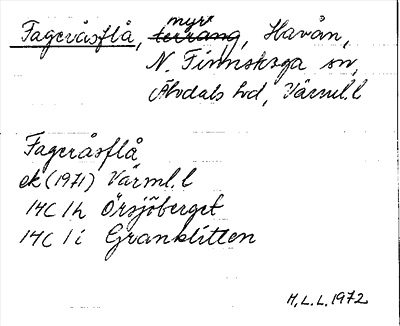 Fageråsflå, myr terräng, Havån,
N. Finnskoga sn,
Älvdals hd, Värml. l
Fageråsflå
ek (1971) Värml. l
14C 1h Örsjöberget
14C 1i Granklitten
H.L.L. 1972